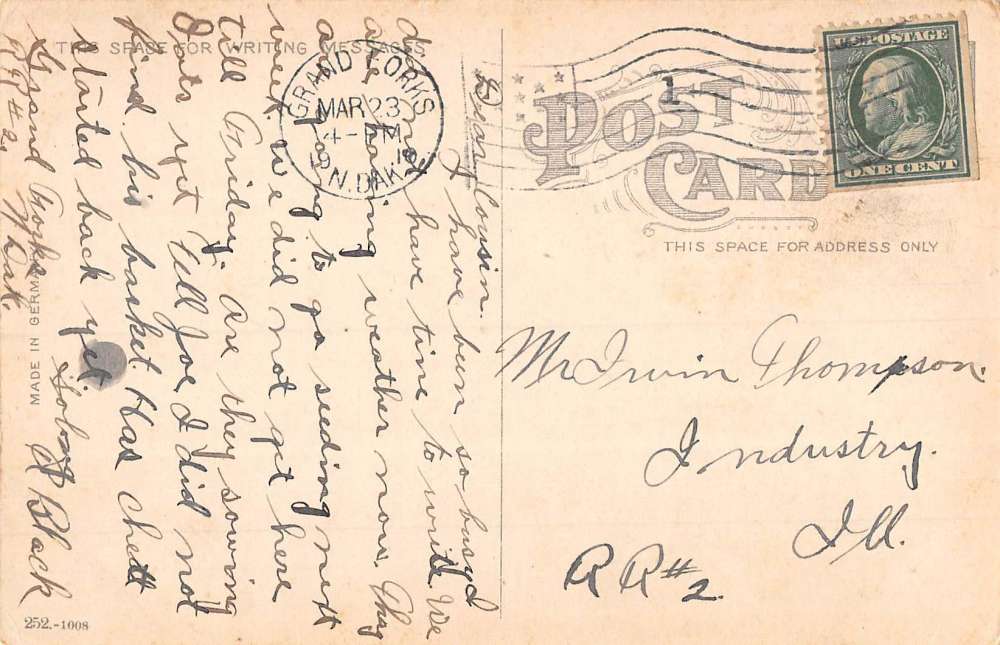 THIS SPACE FOR WRITING MESSAGES
Dear Cousin.
I have been so busy I
do not have time to write. We
are having weather now. They
are going to go seeding next
week. We did not get here
till Friday. Are they sowing
Oats yet. Tell Joe I did not
find his basket. Has Chett
started back yet. So long
Grand Forks I Black
RR #2. N Dak.
MADE IN GERMANY
252.-1008
GRAND FORKS
MAR 23
4-PM
19
N. DAK.
1
U.S. POSTAGE
ONE CENT
POST
CARD
THIS SPACE FOR ADDRESS ONLY
Mr Irwin Thompson.
Industry.
Ill.
RR#2.